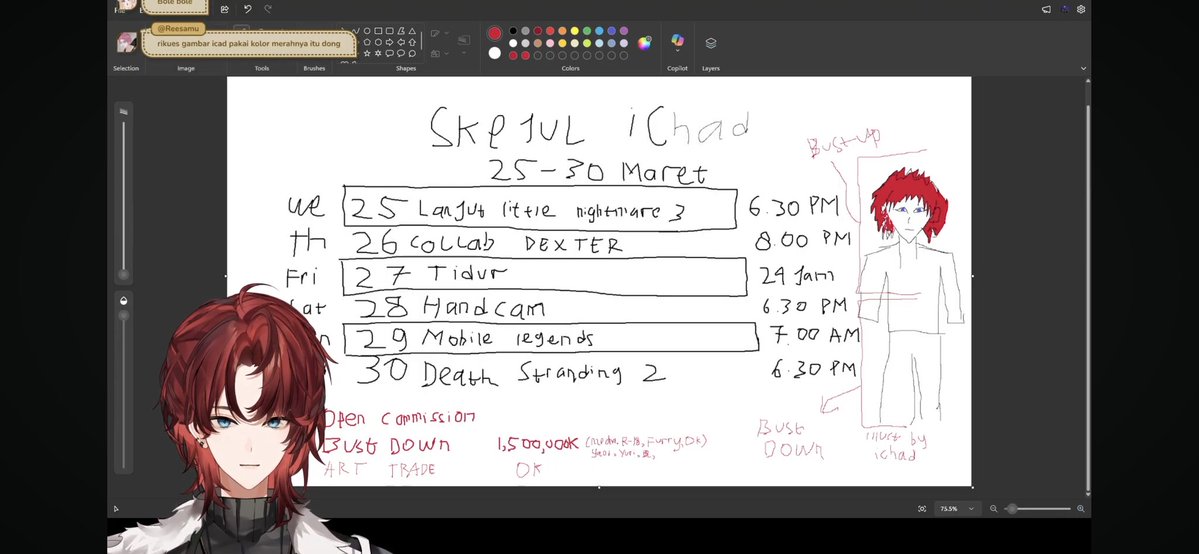 Bole bole
@Reesamu
rikues gambar icad pakai kolor merahnya itu dong
Selection
Image
Tools
Brushes
Shapes
Colors
Copilot
Layers
SKeJUL iChad
25-30 Maret
We 25 Lanjut little nightmare 3 6.30 PM
Th 26 Collab DEXTER 8.00 PM
Fri 27 Tidur 24 Jam
28 Handcam 6.30 PM
29 Mobile legends 7.00 AM
30 Death Stranding 2 6.30 PM
Open Commission
BUST DOWN 1,500,000K
ART TRADE OK
BUST UP
BUST DOWN
illust by ichad
75.5%